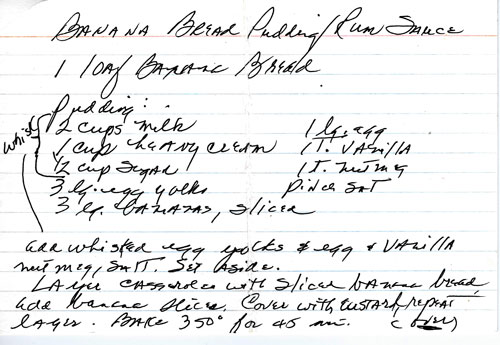 BANANA BREAD Pudding/Rum SAUCE
1 loaf BANANA BREAD
Pudding:
whisk
2 cups milk 1 lg. egg
1 cup HEAVY CREAM 1 T. VANilla
1/2 cup SUGAR 1 t. nutmeg
3 lg. egg yolks PINCH SALT
3 lg. BANANAS, Sliced
add whisked egg yolks & egg & VANilla
nutmeg, SALT. Set Aside.
LAyer casserole with slices banana bread,
add banana slices. Cover with custard, repeat
layer. BAKE 350° for 45 min.